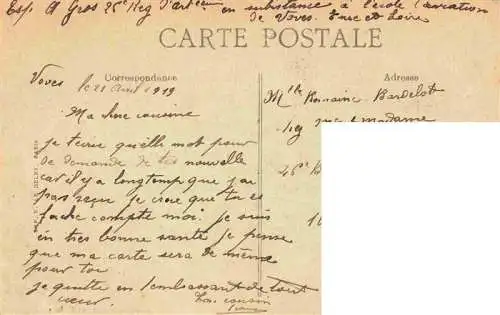 Exp. A Gros 26e Reg d'art en
en subsistance à l'école d'aviation
de Voves. Eure et Loire
CARTE POSTALE
Correspondance
Adresse
Voves le 21 Avril 1919
Ma chere cousine
je t'écrie quelle mot pour
de demande de tes nouvelle
car il y a longtemp que j'ai
pas reçu je croie que tu es
fache compte moi. je suis
en tres bonne santé je pense
que ma carte sera de même
pour toi
je quitte en t'embrassant de tout
cœur. Ton cousin
Mlle Romaine Bardelot
rue madame